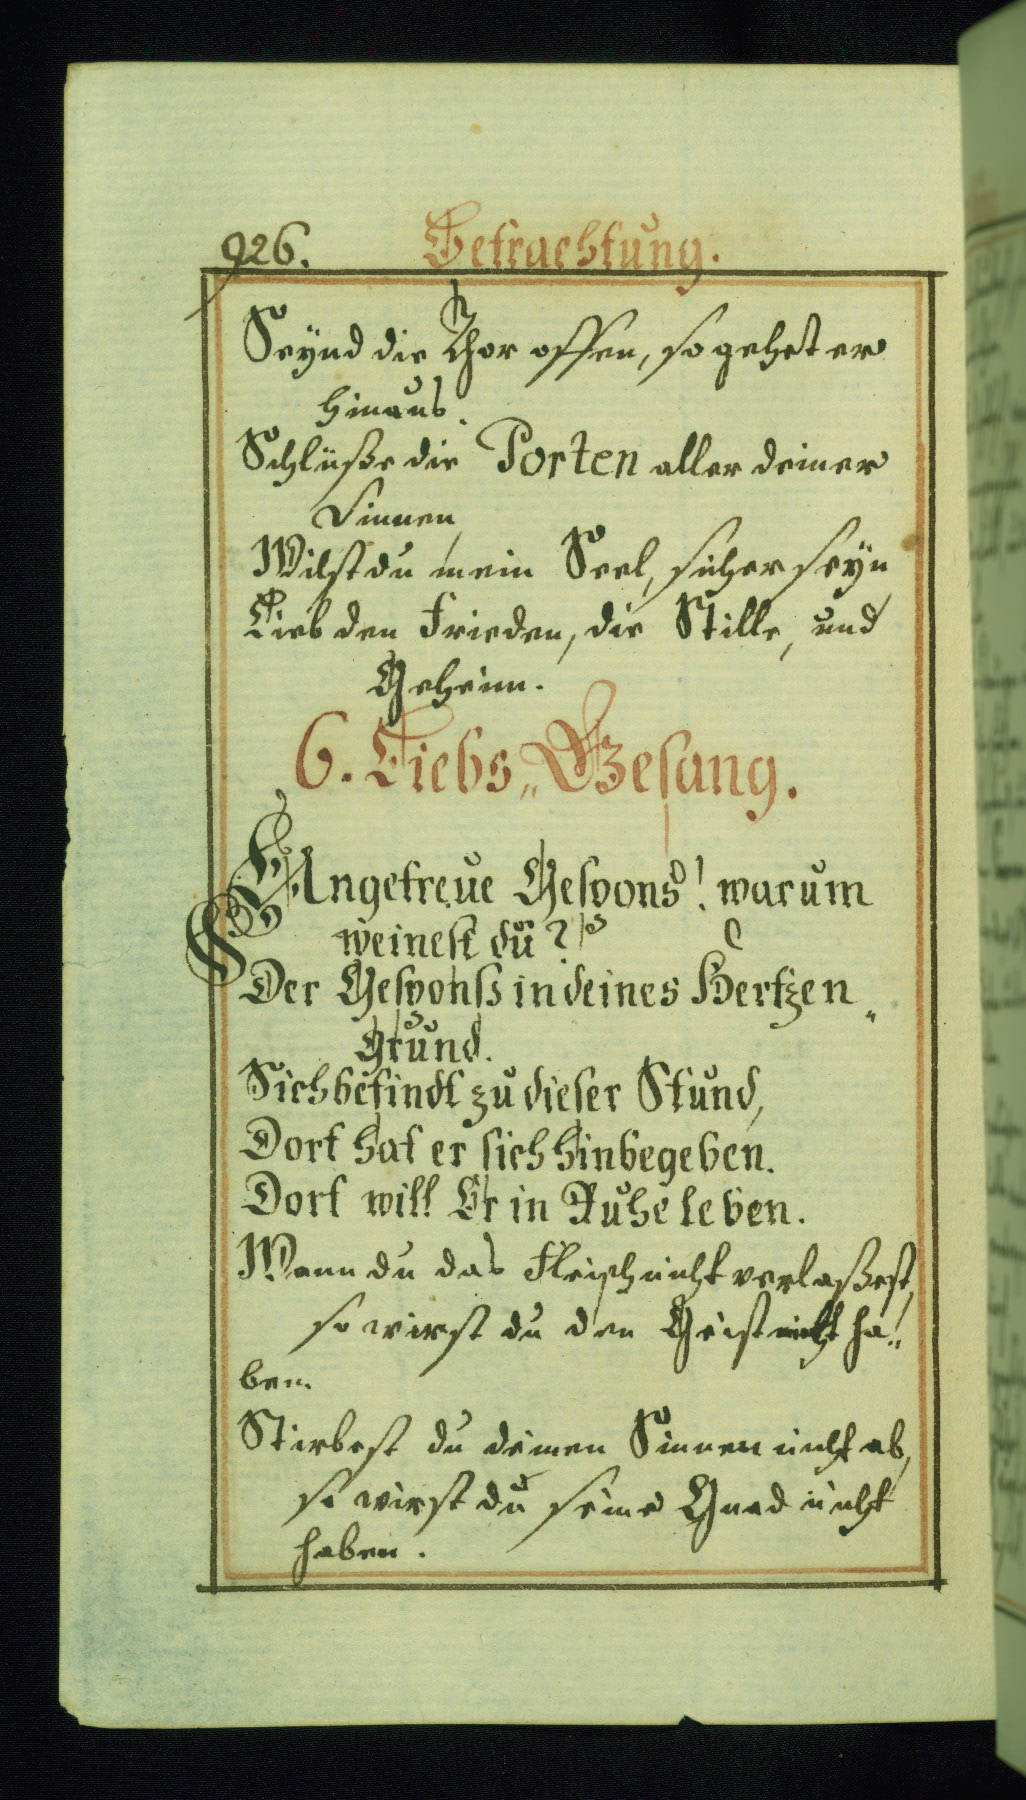 926. Betrachtung.
Seynd die Thor offen, so gehet er
hinaus.
Schlüße die Porten aller deiner
Sinnen,
Wilst du mein Seel, sicher seyn
Lieb den Frieden, die Stille, und
Geheim.
6. Liebs„Gesang.
Ungetreue Gespons! warum
weinest du?
Der Gesponß in deines Hertzen„
Grund.
Sich befindt zu dieser Stund,
Dort hat er sich hinbegeben.
Dort will Er in Ruhe leben.
Wann du das Fleisch nicht verlaßest,
so wirst du den Geist nicht ha„
ben.
Stirbest du deinen Sinnen nicht ab,
so wirst du seine Gnad nicht
haben.